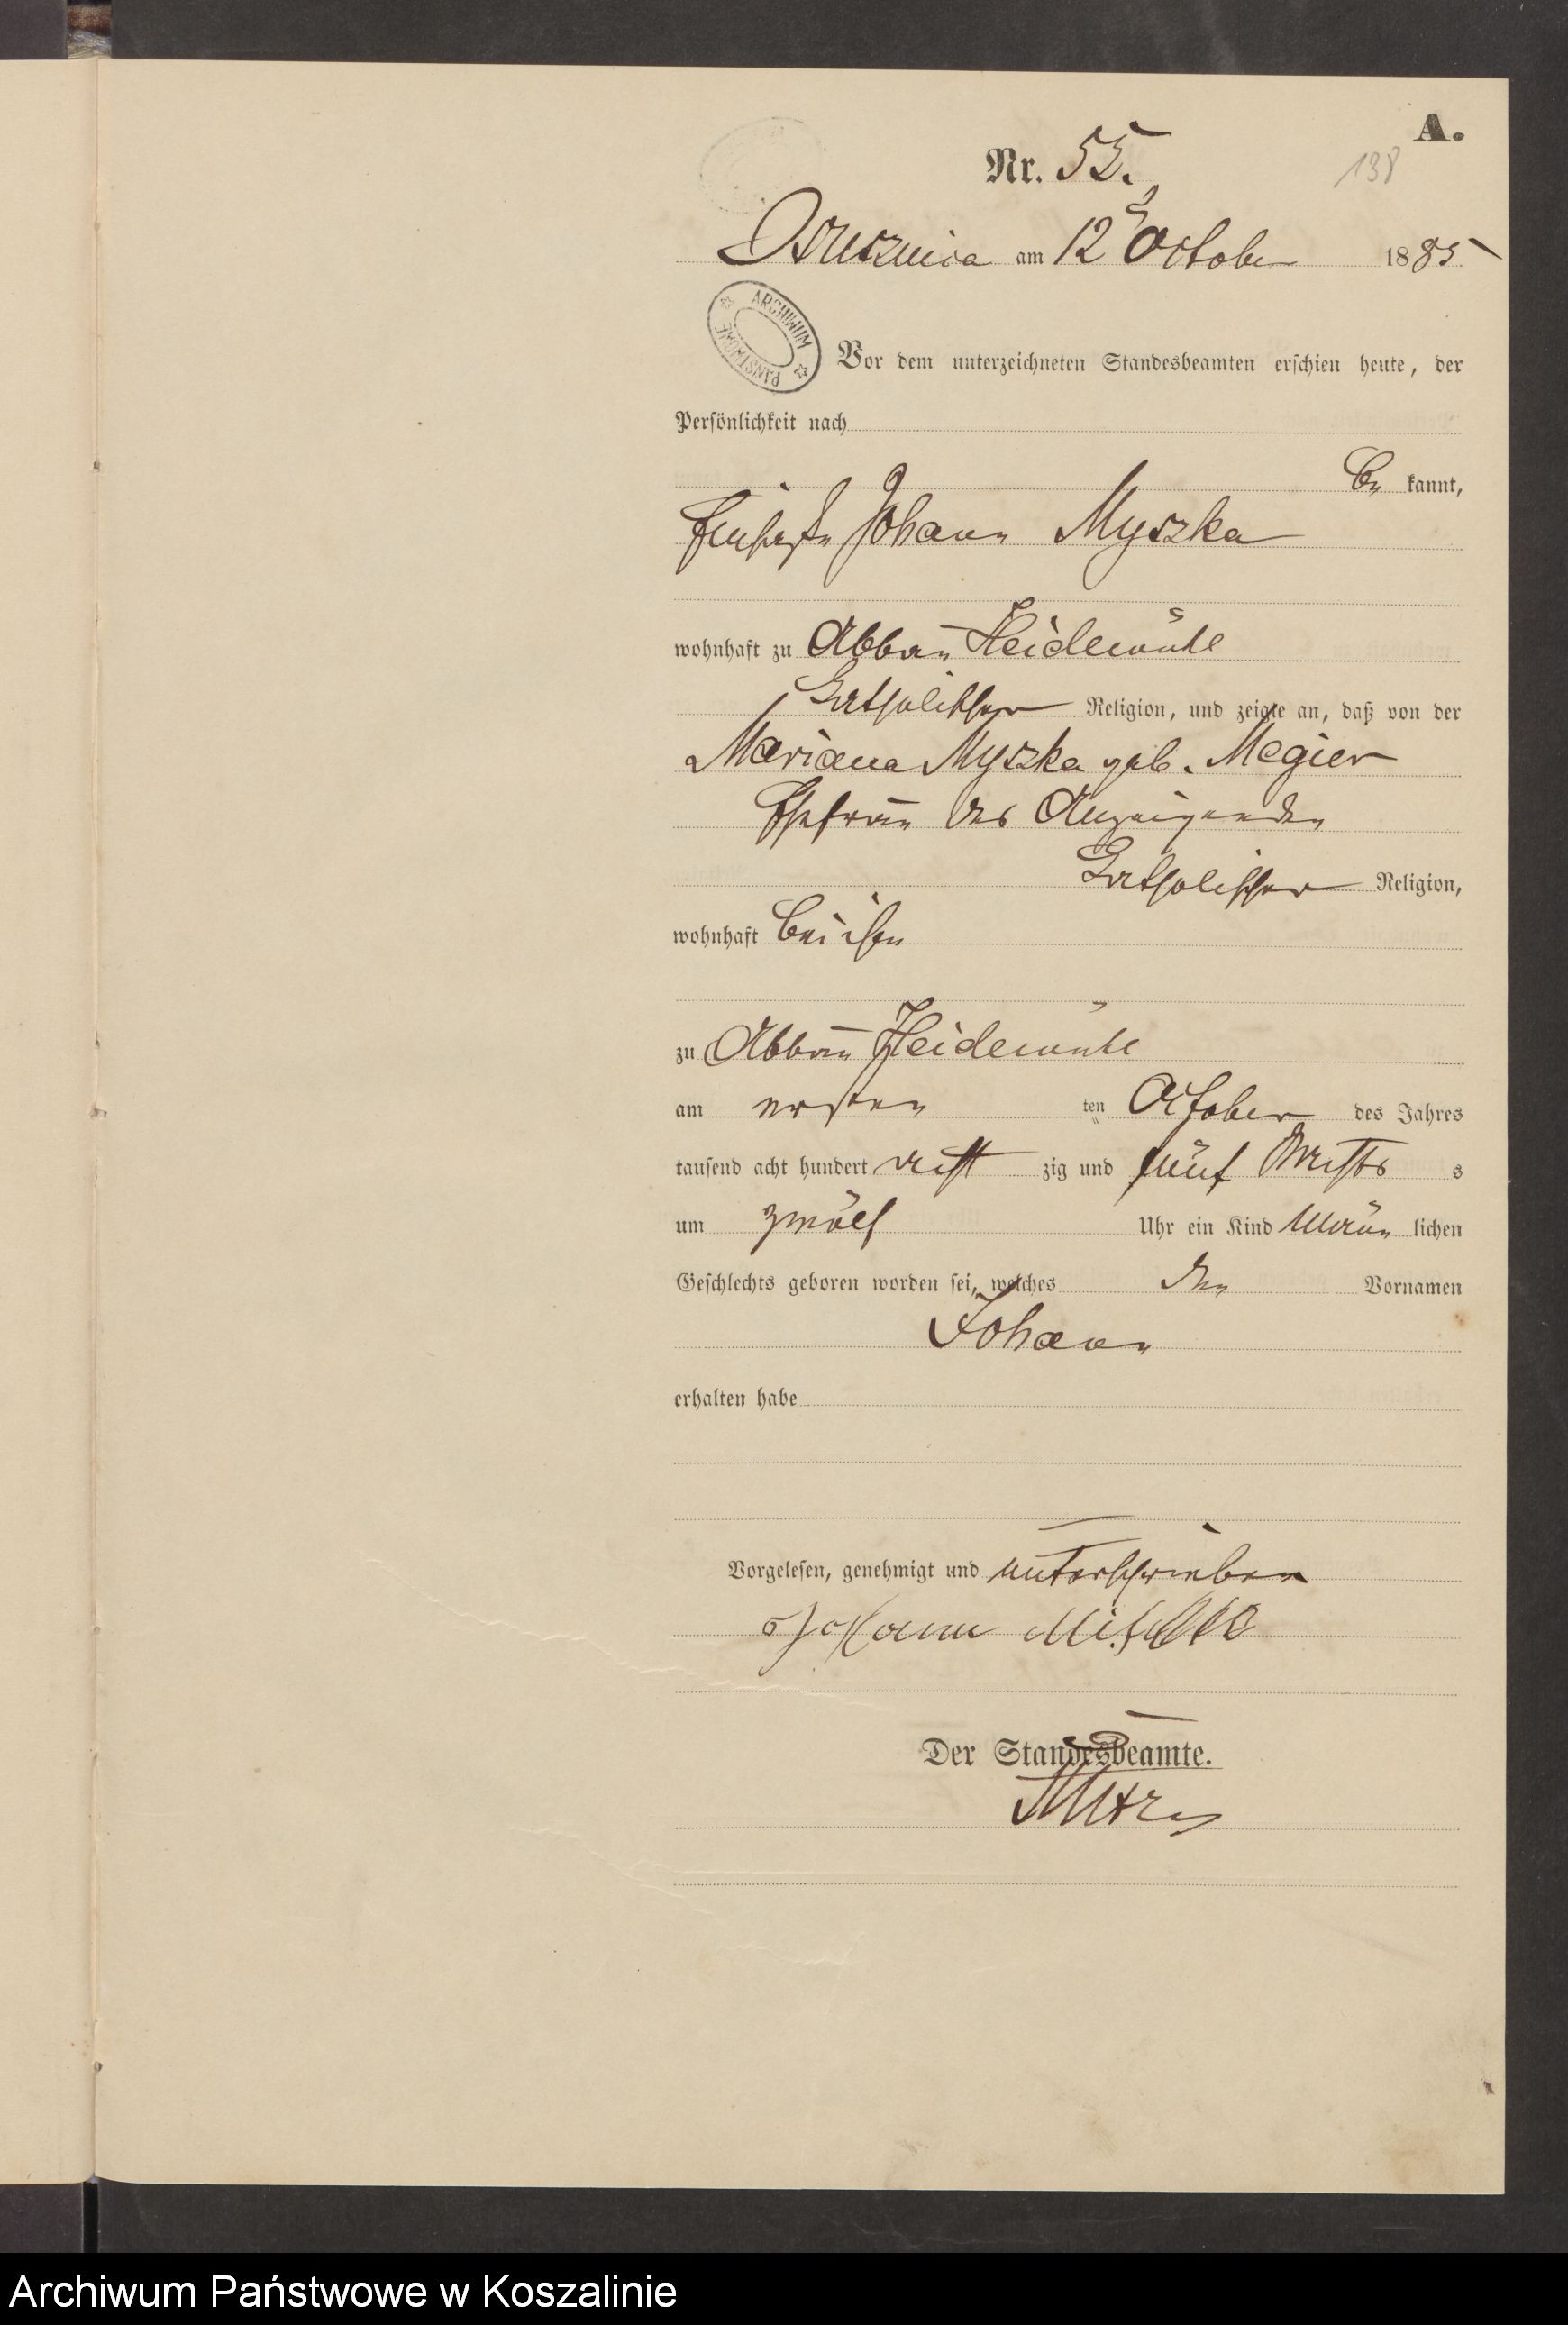 A.
Nr. 55.
138
Ossusznica am 12 October 1885
ARCHIWUM PAŃSTWOWE
Vor dem unterzeichneten Standesbeamten erschien heute, der
Persönlichkeit nach
be kannt,
Johann Myszka
wohnhaft zu Abbau Heidemühl
katholischer Religion, und zeigte an, daß von der
Mariana Myszka geb. Megier
Ehefrau des Anzeigenden
katholischer Religion,
wohnhaft bei ihm
zu Abbau Heidemühl
am ersten ten October des Jahres
tausend acht hundert acht zig und fünf Nachts s
um zwölf Uhr ein Kind männ lichen
Geschlechts geboren worden sei, welches den Vornamen
Johann
erhalten habe
Vorgelesen, genehmigt und unterschrieben
Johann
Der Standesbeamte.
Archiwum Państwowe w Koszalinie